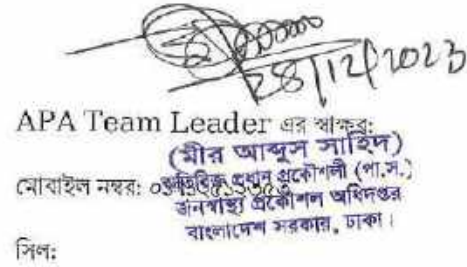 28/12/2023
APA Team Leader এর স্বাক্ষর:
(মীর আব্দুস সাহিদ)
মোবাইল নম্বর:
প্রধান প্রকৌশলী (পা.স.)
জনস্বাস্থ্য প্রকৌশল অধিদপ্তর
বাংলাদেশ সরকার, ঢাকা।
সিল: